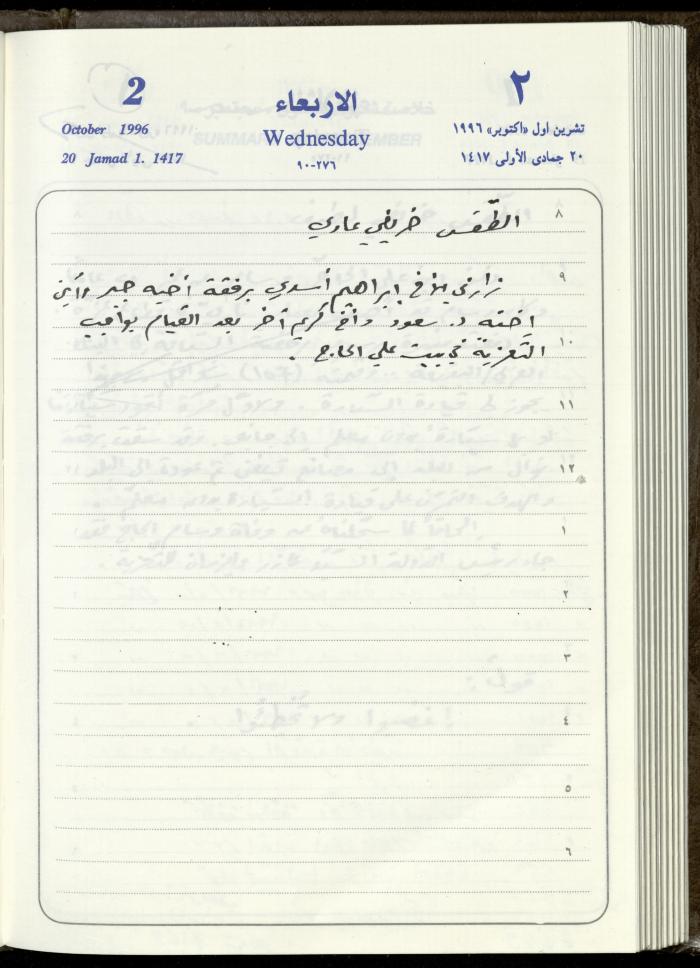 2
٢
الاربعاء
October 1996
Wednesday
تشرين اول «اكتوبر» ١٩٩٦
20 Jamad 1. 1417
٩٠-٢٧٦
٢٠ جمادى الأولى ١٤١٧
٨ الطّقس خريفي عادي
٩ زارني الأخ ابراهيم أسدي برفقة أخيه جبر وابن
اخته د. سعود وأخ كريم آخر بعد القيام بواجب
١٠ التعزية في بيت علي الحاج .
١١
١٢
١
٢
٣
٤
٥
٦